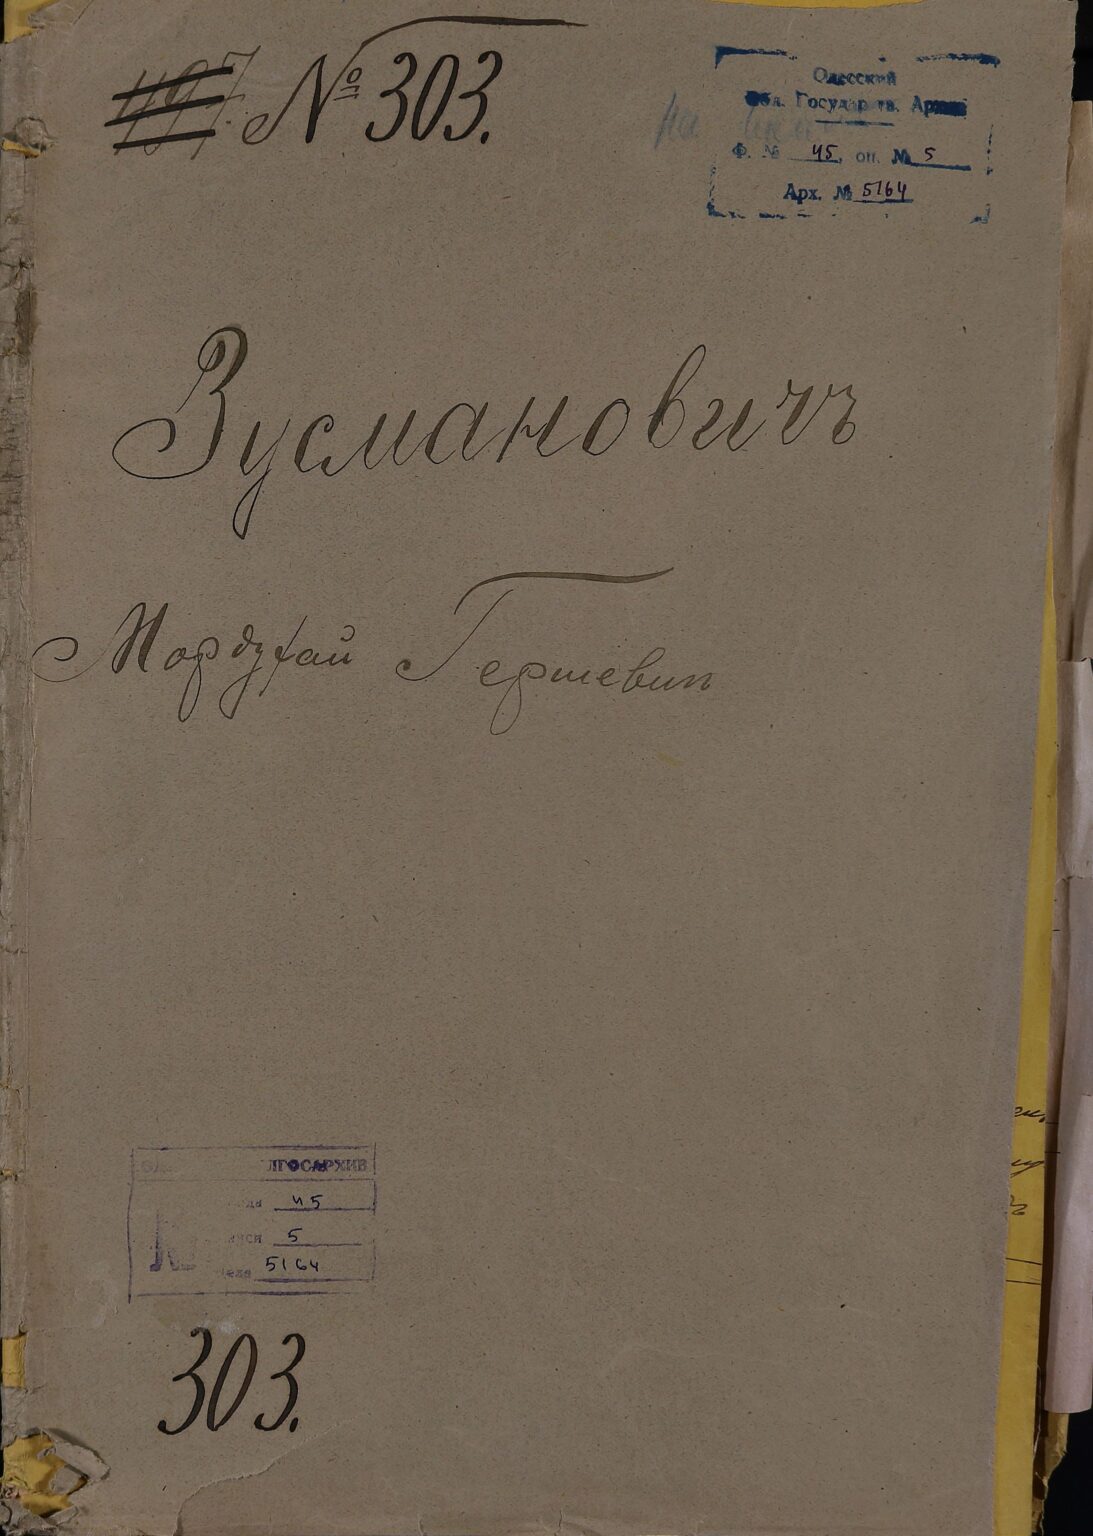 № 303.
Одесский
Обл. Государств. Архив
Ф. № 45, оп. № 5
Арх. № 5164
Зусмановичъ
Мордухай Гершевич
ЛГОСАРХИВ
45
5
5164
303.